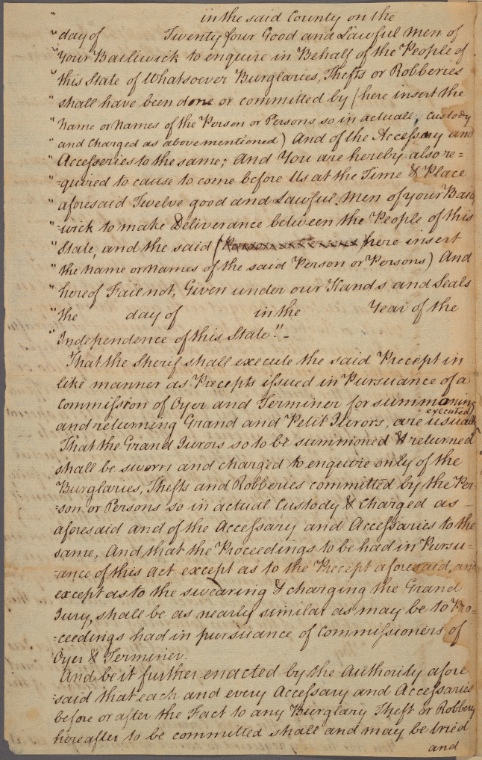 " in the said County on the
" day of Twenty four Good and Lawful Men of
" Your Bailiwick to enquire in Behalf of the People of
" this State of Whatsoever Burglaries, Thefts or Robberies
" shall have been done or committed by (here insert the
" Name or Names of the Person or Persons so in actual, custody
" and Charged as above mentioned) And of the Accessary and
" Accesseries to the same; And You are hereby also re=
" =quired to cause to come before Us at the Time & Place
" aforesaid Twelve good and Lawful Men of your Baili
" =wick to make Deliverance between the People of this
" State, and the said ( here insert
" the Name or Names of the said Person or Persons) And
" hereof Fail not, Given under our Hands and Seals
" the day of in the Year of the
" Independence of this State".
That the Sherif shall execute the said Precept in
like manner as Precepts issued in Pursuance of a
Commission of Oyer and Terminer for summoning
and returning Grand and Petit Jurors, are usually executed
That the Grand Jurors so to be summoned & returned
shall be sworn and charged to enquire only of the
Burglaries, Thefts and Robberies committed by the Per-
son or Persons so in actual Custody & Charged as
aforesaid and of the Accessary and Accessaries to the
same, And that the Proceedings to be had in Pursu-
=ance of this Act except as to the Precept aforesaid, and
except as to the swearing & charging the Grand
Jury, shall be as nearly similar as may be to Pro=
=ceedings had in pursuance of Commissioners of
Oyer & Terminer.
And be it further enacted by the Authority afore
said that each and every Accessary and Accessaries
before or after the Fact to any Burglary Theft or Robbery
hereafter to be committed shall and may be tried
and